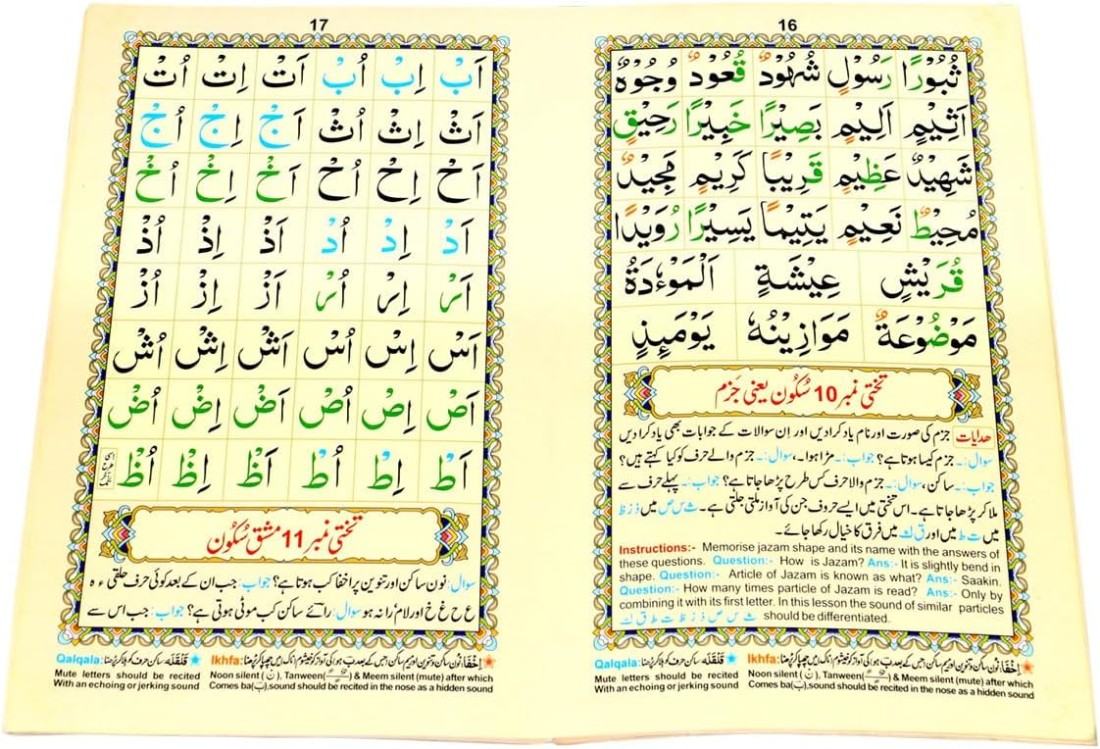 16
ثُبُوْرًا رَسُوْلٍ شُهُوْدٌ قُعُوْدٌ وُجُوْهٌ
اَثِيْمٍ اَلِيْمٍ بَصِيْرًا خَبِيْرًا رَحِيْقٍ
شَهِيْدٌ عَظِيْمٍ قَرِيْبًا كَرِيْمٍ مَجِيْدٌ
مُحِيْطٌ نَعِيْمٍ يَتِيْمًا يَسِيْرًا رُوَيْدًا
قُرَيْشٍ عِيْشَةٍ اَلْمَوْءٗدَةُ
مَوْضُوْعَةٌ مَوَازِيْنُهٗ يَوْمَئِذٍ
تختی نمبر 10 سُکُوْن یعنی جَزم
ھدایات جزم کی صورت اور نام یاد کرادیں اور اِن سوالات کے جوابات بھی یاد کرا دیں
سوال:۔ جزم کیسا ہوتا ہے؟ جواب:۔ مڑا ہوا۔، سوال:۔ جزم والے حرف کو کیا کہتے ہیں؟
جواب:۔ ساکن، سوال:۔ جزم والا حرف کس طرح پڑھا جاتا ہے؟ جواب:۔ پہلے حرف سے
ملا کر پڑھا جاتا ہے۔ اس تختی میں ایسے حروف جن کی آواز ملتی جلتی ہے۔ ث س ص میں ذ ز ظ
میں ت ط میں اور ق ک میں فرق کا خیال رکھا جائے۔
Instructions:- Memorise jazam shape and its name with the answers of
these questions. Question:- How is Jazam? Ans:- It is slightly bend in
shape. Question:- Article of Jazam is known as what? Ans:- Saakin.
Question:- How many times particle of Jazam is read? Ans:- Only by
combining it with its first letter. In this lesson the sound of similar particles
ث س ص ذ ز ظ ت ط ق ك should be differentiated.
Qalqala: قَلْقَلَه ساکن حرف کو ہلا کر پڑھنا
Mute letters should be recited
With an echoing or jerking sound
Ikhfa:
Noon silent (نْ), Tanween & Meem silent (mute) after which
Comes ba(بَ),sound should be recited in the nose as a hidden sound
17
اَبْ اِبْ اُبْ اَتْ اِتْ اُتْ
اَثْ اِثْ اُثْ اَجْ اِجْ اُجْ
اَحْ اِحْ اُحْ اَخْ اِخْ اُخْ
اَدْ اِدْ اُدْ اَذْ اِذْ اُذْ
اَرْ اِرْ اُرْ اَزْ اِزْ اُزْ
اَسْ اِسْ اُسْ اَشْ اِشْ اُشْ
اَصْ اِصْ اُصْ اَضْ اِضْ اُضْ
اَطْ اِطْ اُطْ اَظْ اِظْ اُظْ
تختی نمبر 11 مشق سُکُوْن
سوال: نون ساکن اور تنوین پر اخفا کب ہوتا ہے؟ جواب: جب ان کے بعد کوئی حرف حلقی ء ہ
ع ح غ خ اور لام را نہ ہو سوال: رائے ساکن کب موٹی ہوتی ہے؟ جواب: جب اس سے
Qalqala: قَلْقَلَه ساکن حرف کو ہلا کر پڑھنا
Mute letters should be recited
With an echoing or jerking sound
Ikhfa:
Noon silent (نْ), Tanween & Meem silent (mute) after which
Comes ba(بَ),sound should be recited in the nose as a hidden sound